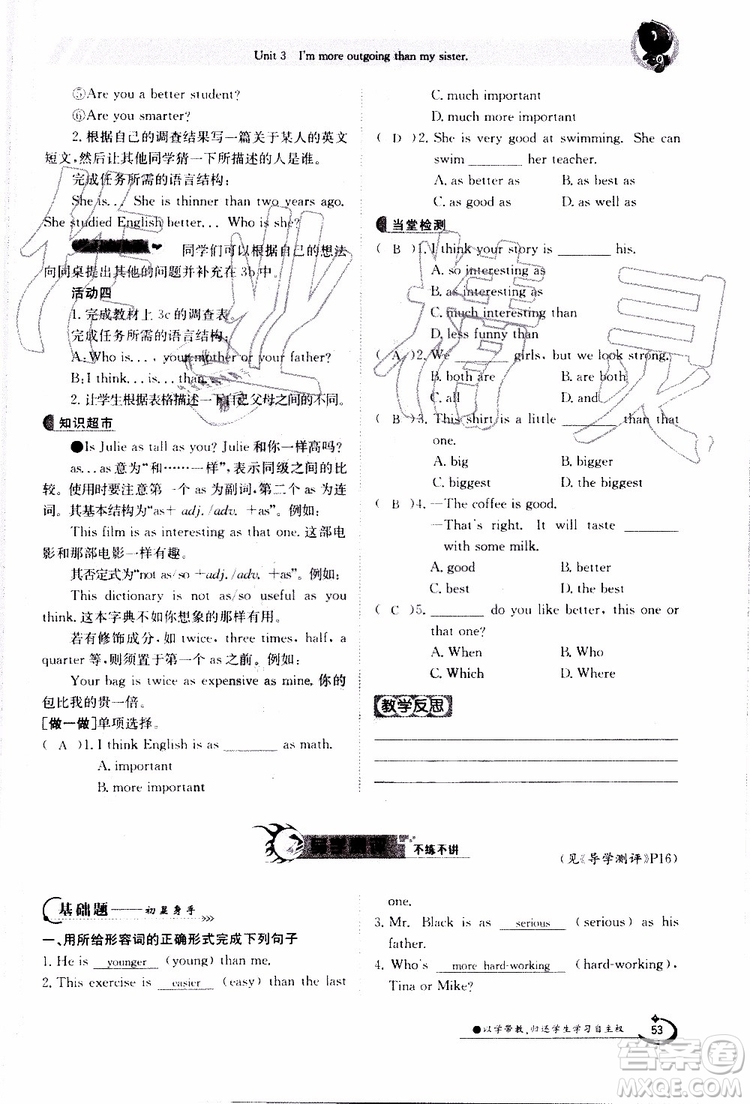 Unit 3 I'm more outgoing than my sister.
⑤Are you a better student?
⑥Are you smarter?
2. 根据自己的调查结果写一篇关于某人的英文
短文,然后让其他同学猜一下所描述的人是谁。
完成任务所需的语言结构:
She is... She is thinner than two years ago.
She studied English better... Who is she?
同学们可以根据自己的想法
向同桌提出其他的问题并补充在3b中。
活动四
1. 完成教材上3c的调查表。
完成任务所需的语言结构:
A:Who is..., your mother or your father?
B:... is... than...
2. 让学生根据表格描述一下自己父母之间的不同。
知识超市
●Is Julie as tall as you? Julie和你一样高吗?
as...as意为“和……一样”,表示同级之间的比
较。使用时要注意第一个as为副词,第二个as为连
词。其基本结构为“as+ adj. /adv. +as”。例如:
This film is as interesting as that one. 这部电
影和那部电影一样有趣。
其否定式为“not as/so +adj. /adv. +as”。例如:
This dictionary is not as/so useful as you
think. 这本字典不如你想象的那样有用。
若有修饰成分,如 twice, three times, half, a
quarter等,则须置于第一个as之前。例如:
Your bag is twice as expensive as mine. 你的
包比我的贵一倍。
[做一做]单项选择。
( A )1. I think English is as ________ as math.
A. important
B. more important
C. much important
D. much more important
( D )2. She is very good at swimming. She can
swim ________ her teacher.
A. as better as B. as best as
C. as good as D. as well as
当堂检测
( B )1. I think your story is ________ his.
A. so interesting as
B. as interesting as
C. much interesting than
D. less funny than
( A )2. We ________ girls, but we look strong.
A. both are B. are both
C. all D. and
( B )3. This shirt is a little ________ than that
one.
A. big B. bigger
C. biggest D. the biggest
( B )4. —The coffee is good.
—That's right. It will taste ________
with some milk.
A. good B. better
C. best D. the best
( C )5. ________ do you like better, this one or
that one?
A. When B. Who
C. Which D. Where
教学反思
不练不讲
(见《导学测评》P16)
基础题——初显身手
一、用所给形容词的正确形式完成下列句子
1. He is younger (young) than me.
2. This exercise is easier (easy) than the last
one.
3. Mr. Black is as serious (serious) as his
father.
4. Who's more hard-working (hard-working),
Tina or Mike?
●以学带教,归还学生学习自主权
53
作业精灵
答案圈
MXQE.COM